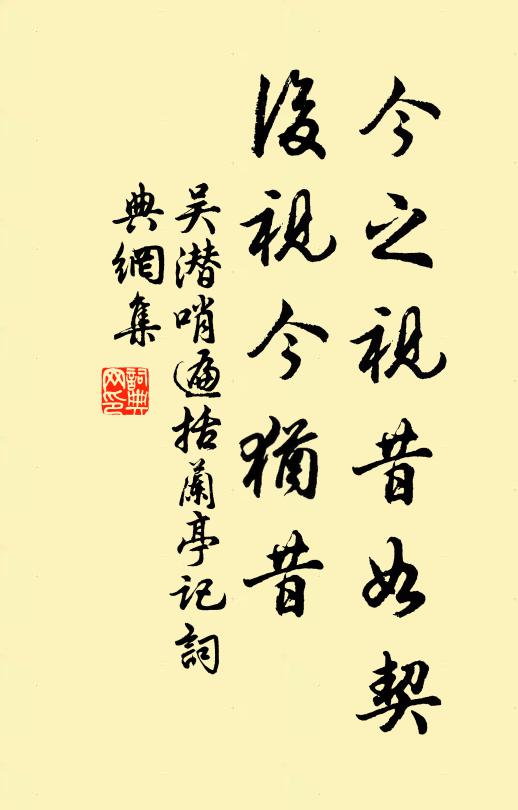 今之視昔如契
後視今猶昔
吴潜哨遍括蘭亭記詞
典網集
詞典
网印